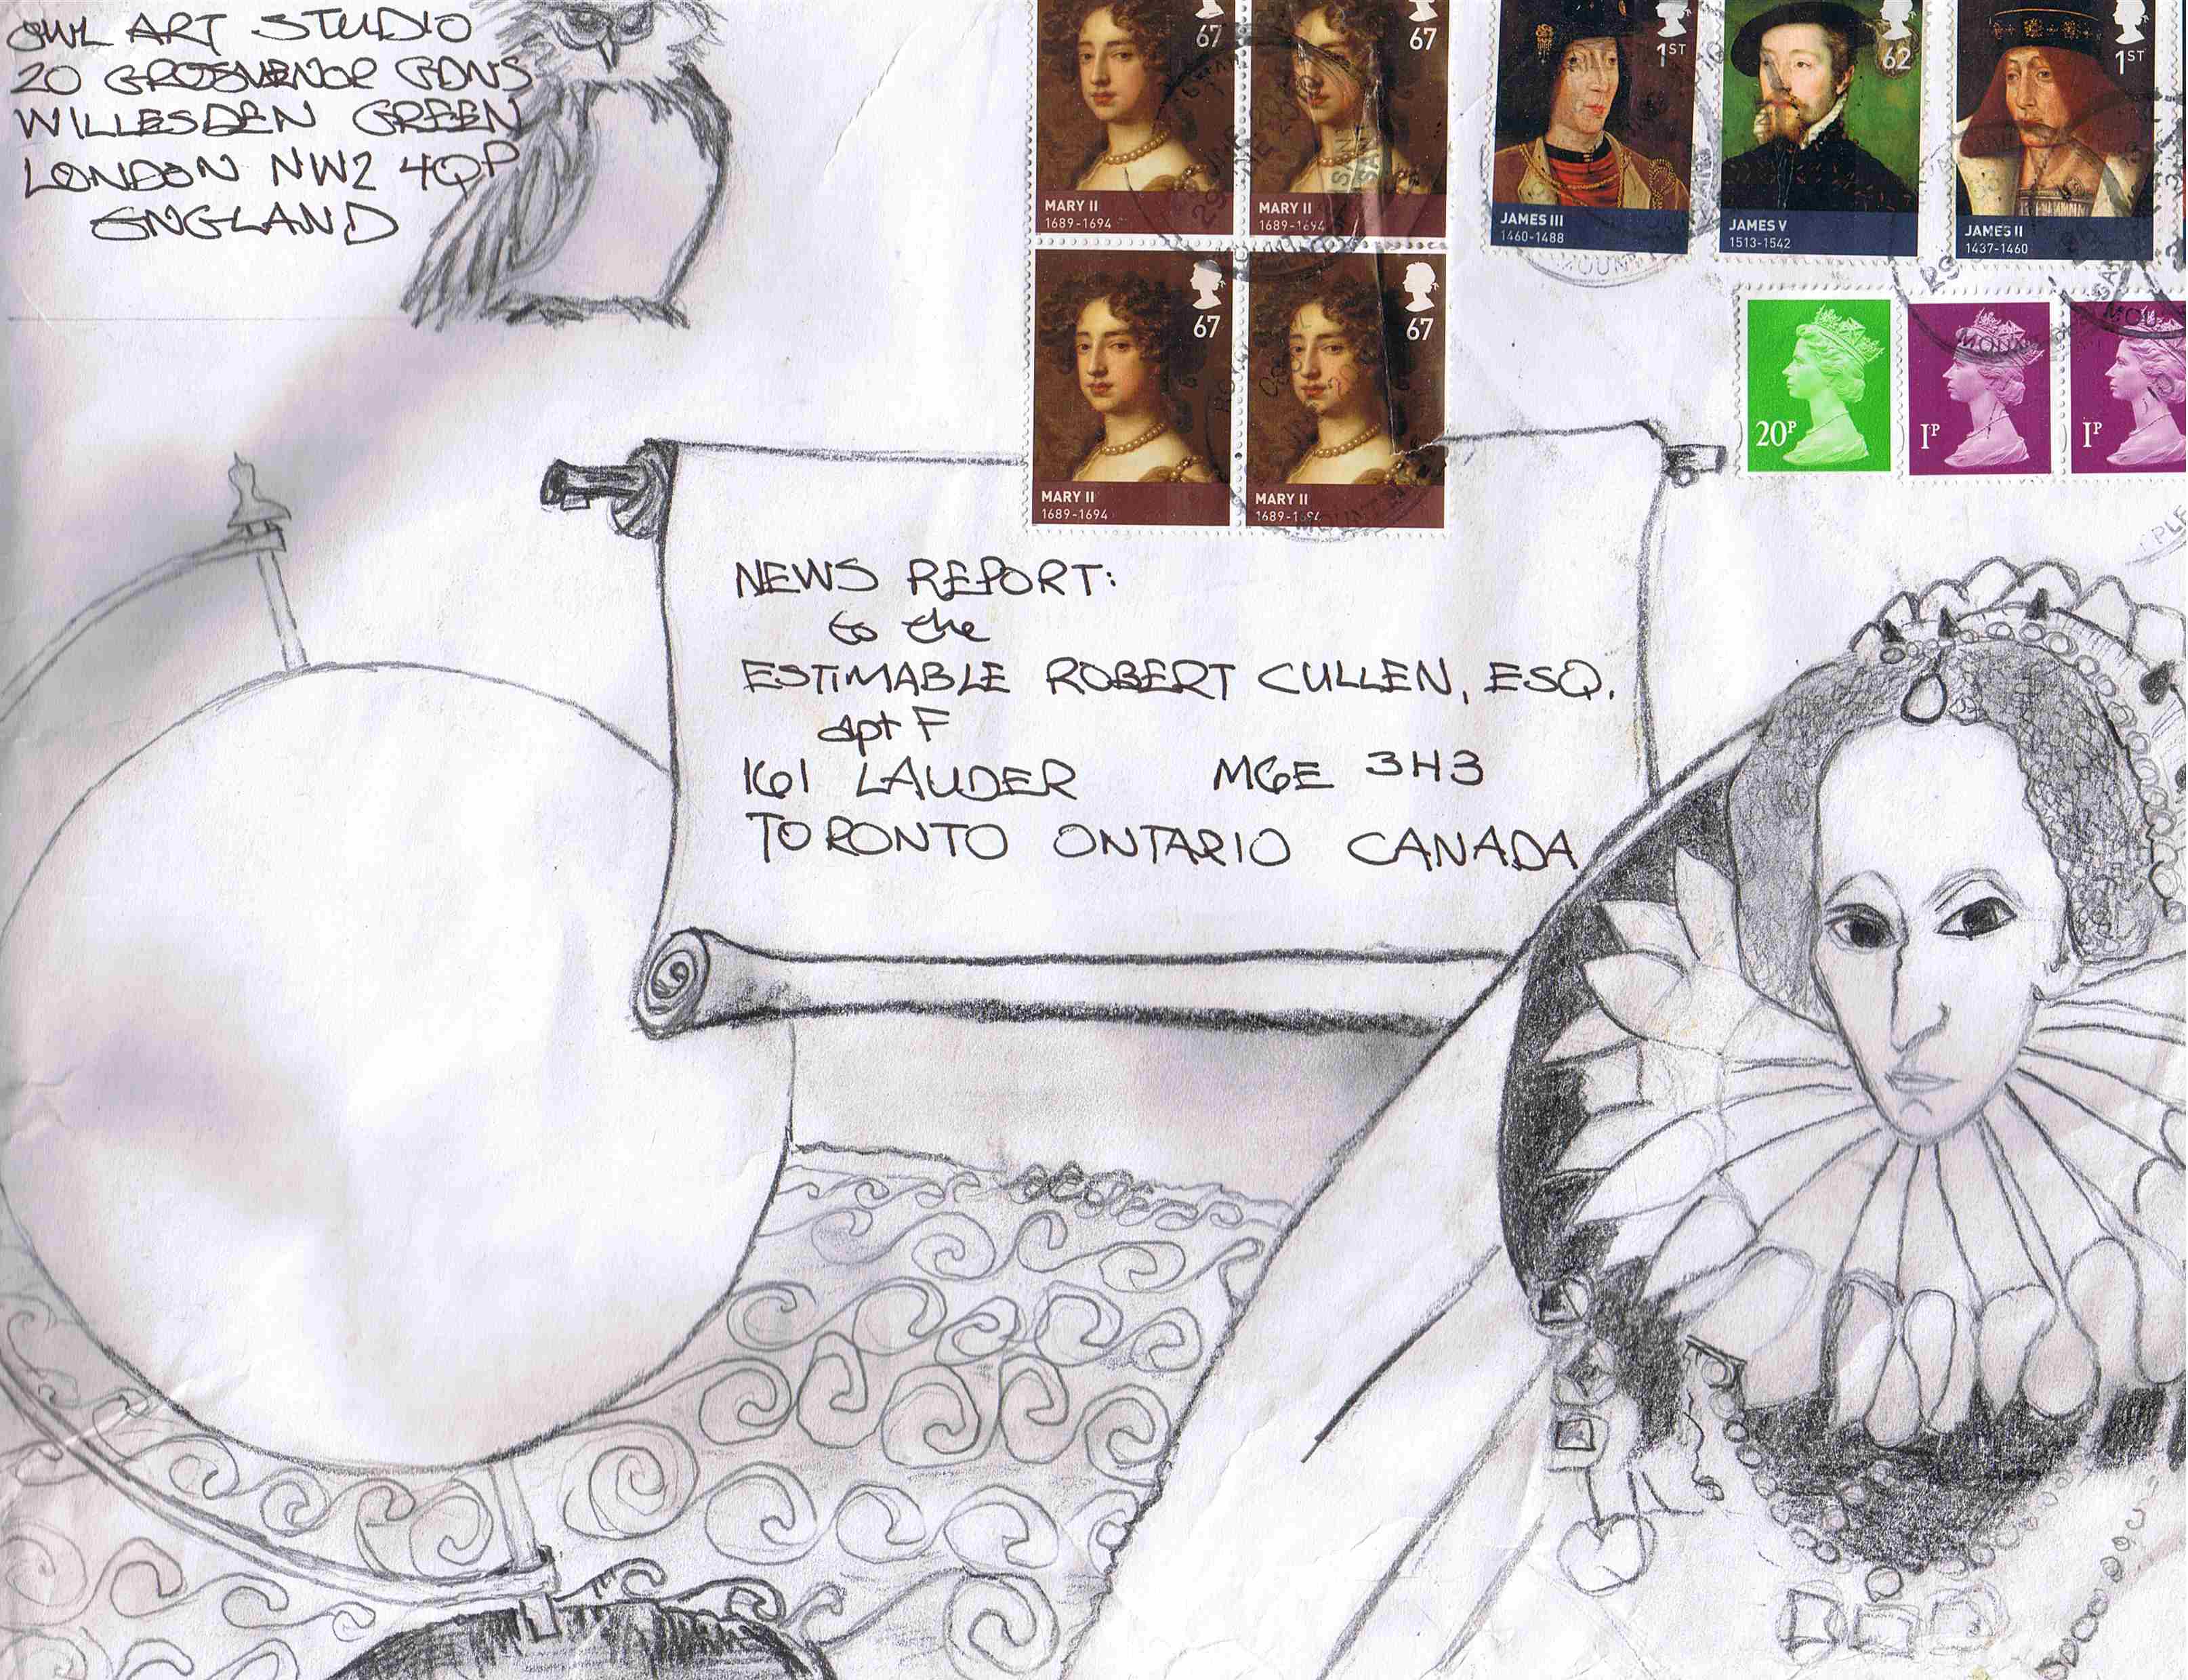 OWL ART STUDIO
20 GROSVENOR GDNS
WILLESDEN GREEN
LONDON NW2 4QP
ENGLAND
67
67
1ST
62
1ST
MARY II
1689-1694
MARY II
1689-1694
JAMES III
1460-1488
JAMES V
1513-1542
JAMES II
1437-1460
67
67
20P
1P
1P
MARY II
1689-1694
MARY II
1689-1694
NEWS REPORT:
to the
ESTIMABLE ROBERT CULLEN, ESQ.
apt F
161 LAUDER M6E 3H3
TORONTO ONTARIO CANADA